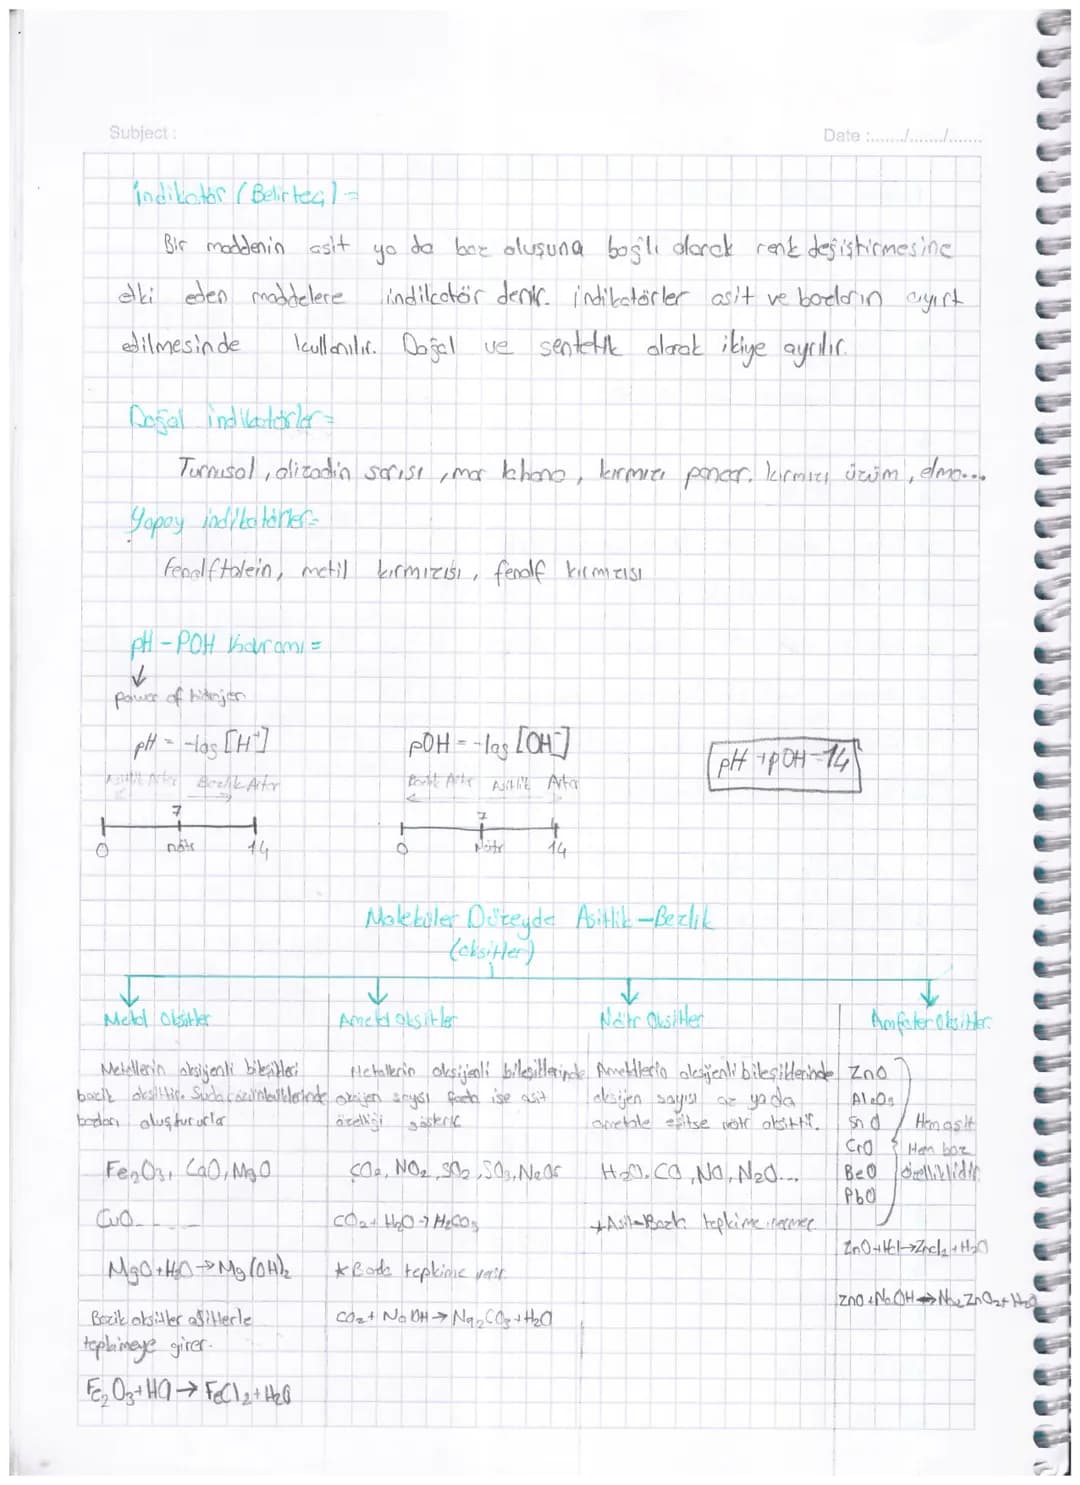 Subject :
Date :......./......./.......
İndikatör (Belirteç) =
Bir maddenin asit ya da baz oluşuna bağlı olarak renk değiştirmesine
etki eden maddelere indikatör denir. indikatörler asit ve bazların ayırt
edilmesinde kullanılır. Doğal ve sentetik olarak ikiye ayrılır.
Doğal indikatörler =
Turnusol, alizadin sarısı, mor lahana, kırmızı pancar, kırmızı üzüm, elma...
Yapay indikatörler=
fenolftalein, metil kırmızısı, fenolf kırmızısı
pH - POH Kavramı =
↓
power of hidrojen
pH = -log [H⁺]
pOH = -log [OH⁻]
pH + pOH = 14
Asitlik Artar Bazlik Artar
Bazlık Artar Asitlik Artar
7
7
0 nötr 14
0 Nötr 14
Moleküler Düzeyde Asitlik - Bazlık
(oksitler)
Metal Oksitler
Ametal oksitler
Nötr Oksitler
Amfoter Oksitler
Metallerin oksijenli bileşikleri
bazik oksittir. Suda çözündüklerinde
bazları oluştururlar
Fe₂O₃, CaO, MgO
CuO......
MgO + H₂O → Mg(OH)₂
Bazik oksitler asitlerle
tepkimeye girer.
Fe₂O₃ + HCl → FeCl₂ + H₂O
Metallerin oksijenli bileşiklerinde
oksijen sayısı fazla ise asit
özelliği gösterir
CO₂, NO₂, SO₂, SO₃, N₂O₅
CO₂ + H₂O → H₂CO₃
* Bazla tepkime verir.
CO₂ + NaOH → Na₂CO₃ + H₂O
Ametallerin oksijenli bileşiklerinde
oksijen sayısı az ya da
ametale eşitse nötr oksittir.
H₂O, CO, NO, N₂O...
* Asit-Bazla tepkime vermez
ZnO
Al₂O₃
SnO
CrO
BeO
PbO
Hem asit
Hem baz
özelliklidir
ZnO + HCl → ZnCl₂ + H₂O
ZnO + NaOH → Na₂ZnO₂ + H₂O